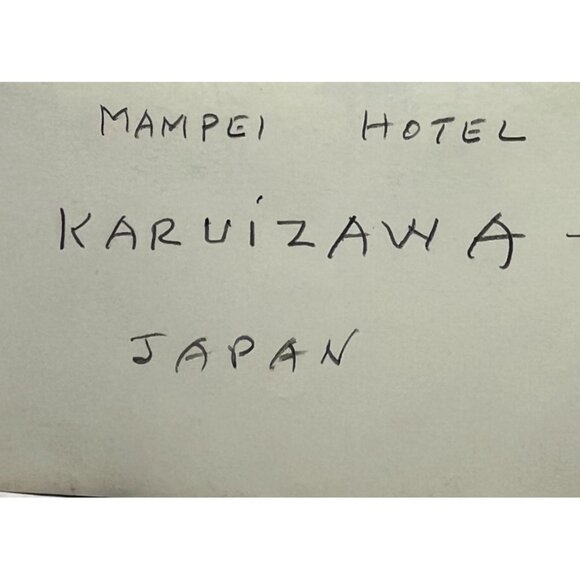 MAMPEI HOTEL
KARUiZAWA -
JAPAN